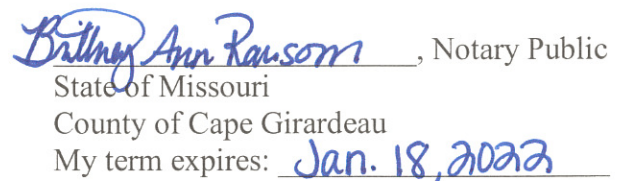 Brittney Ann Ransom, Notary Public
State of Missouri
County of Cape Girardeau
My term expires: Jan. 18, 2022